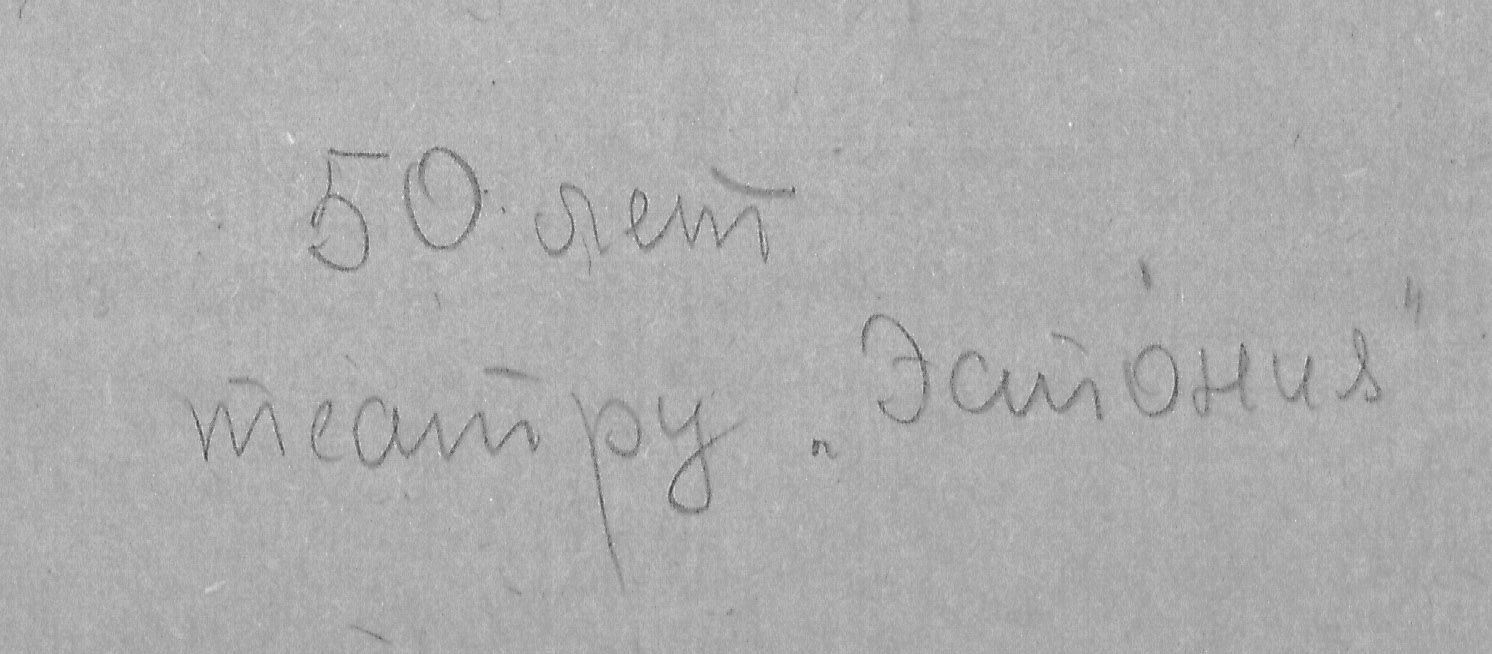 50 лет
театру „Эстония"